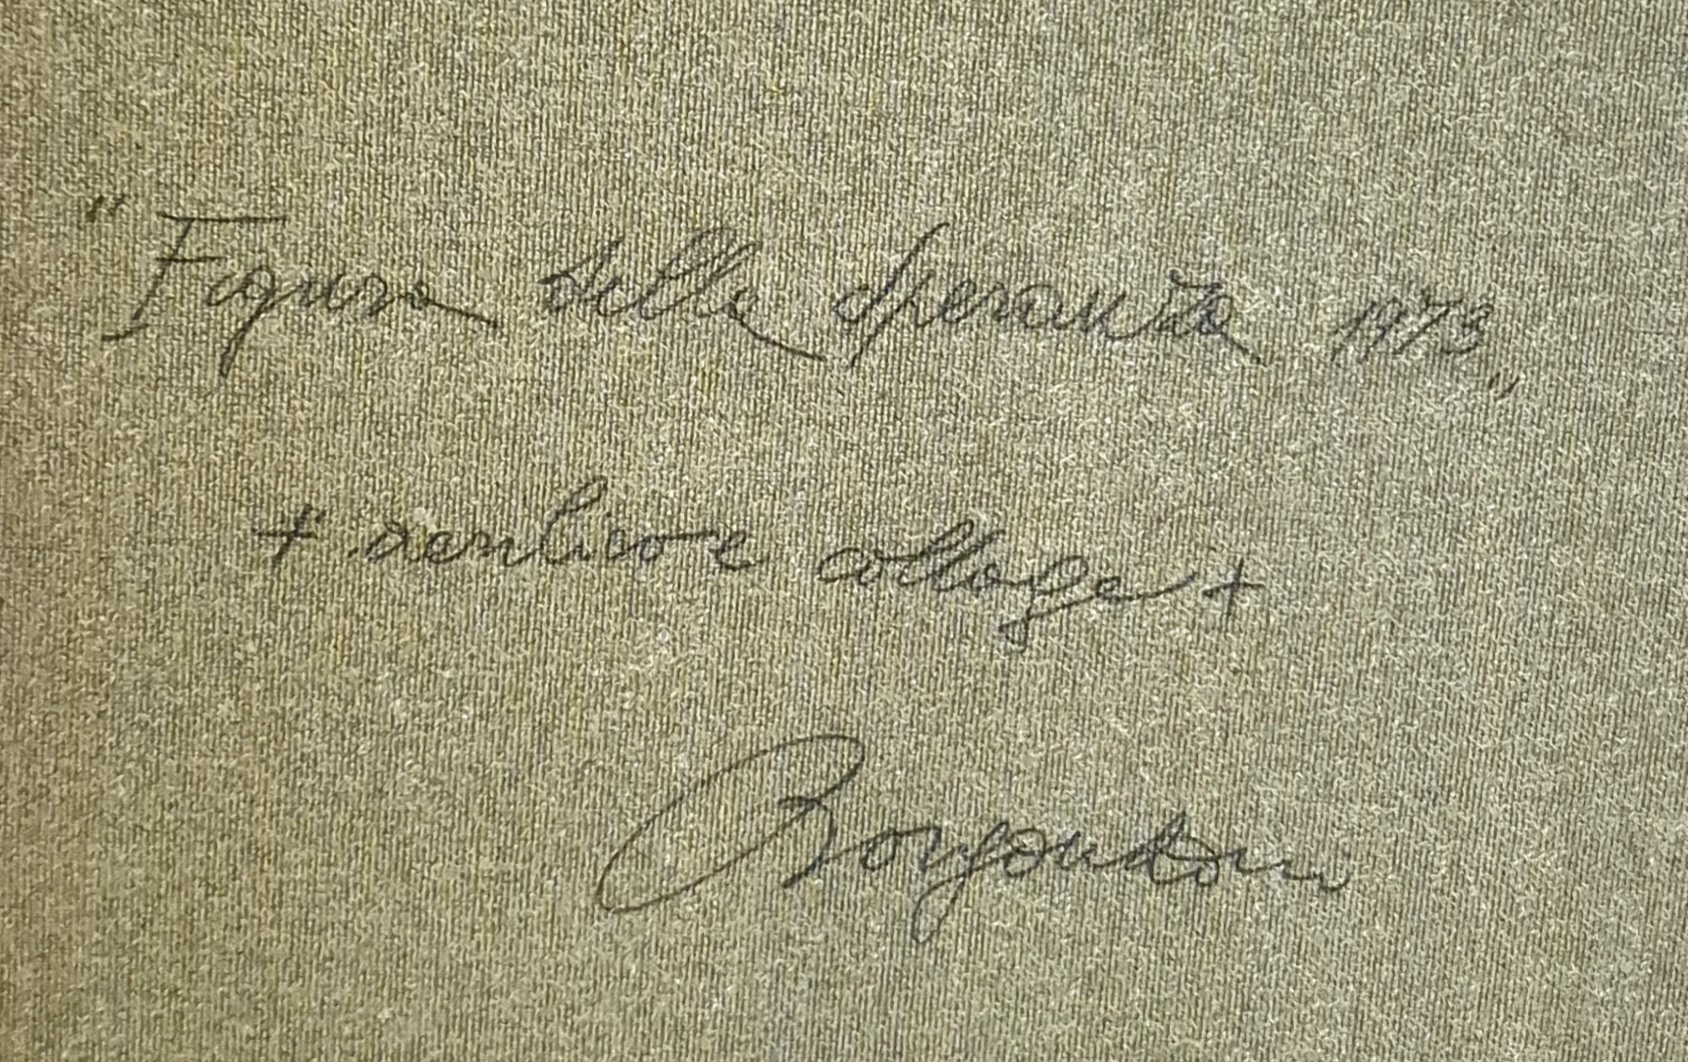 "Figura della Speranza 1973"
+ acrilico e collage +